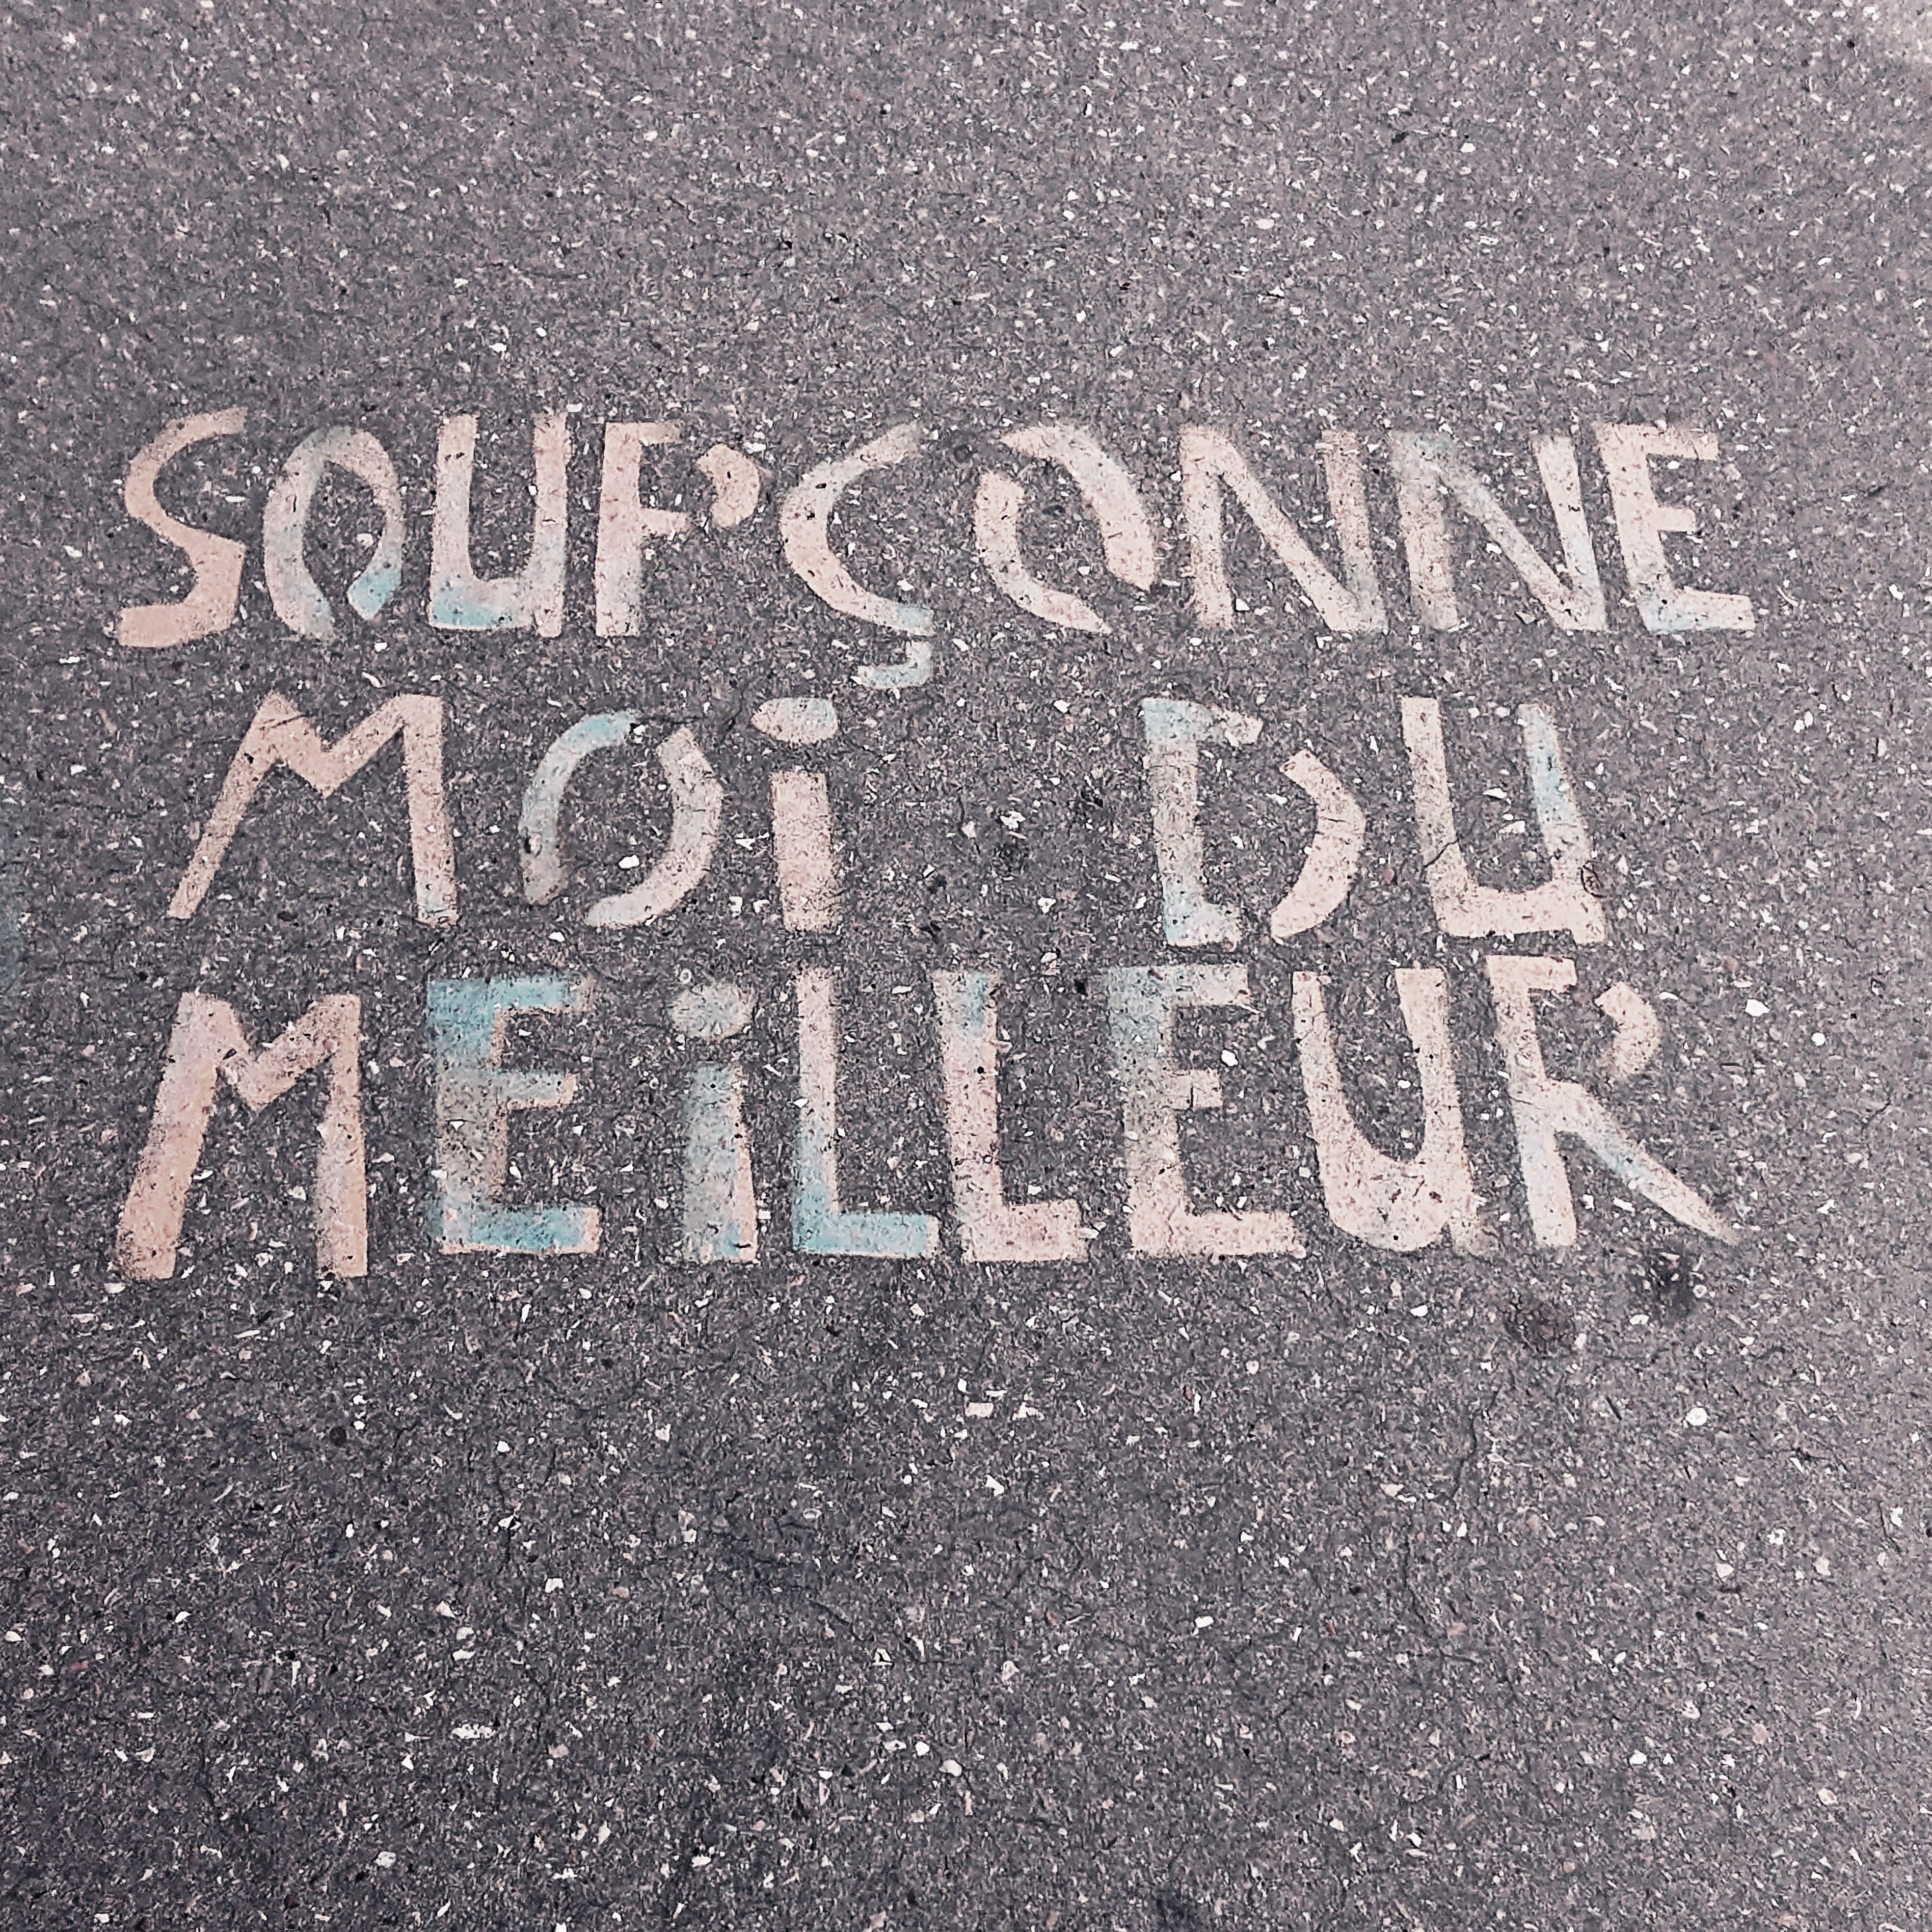 SOUPÇONNE
MOi DU
MEiLLEUR